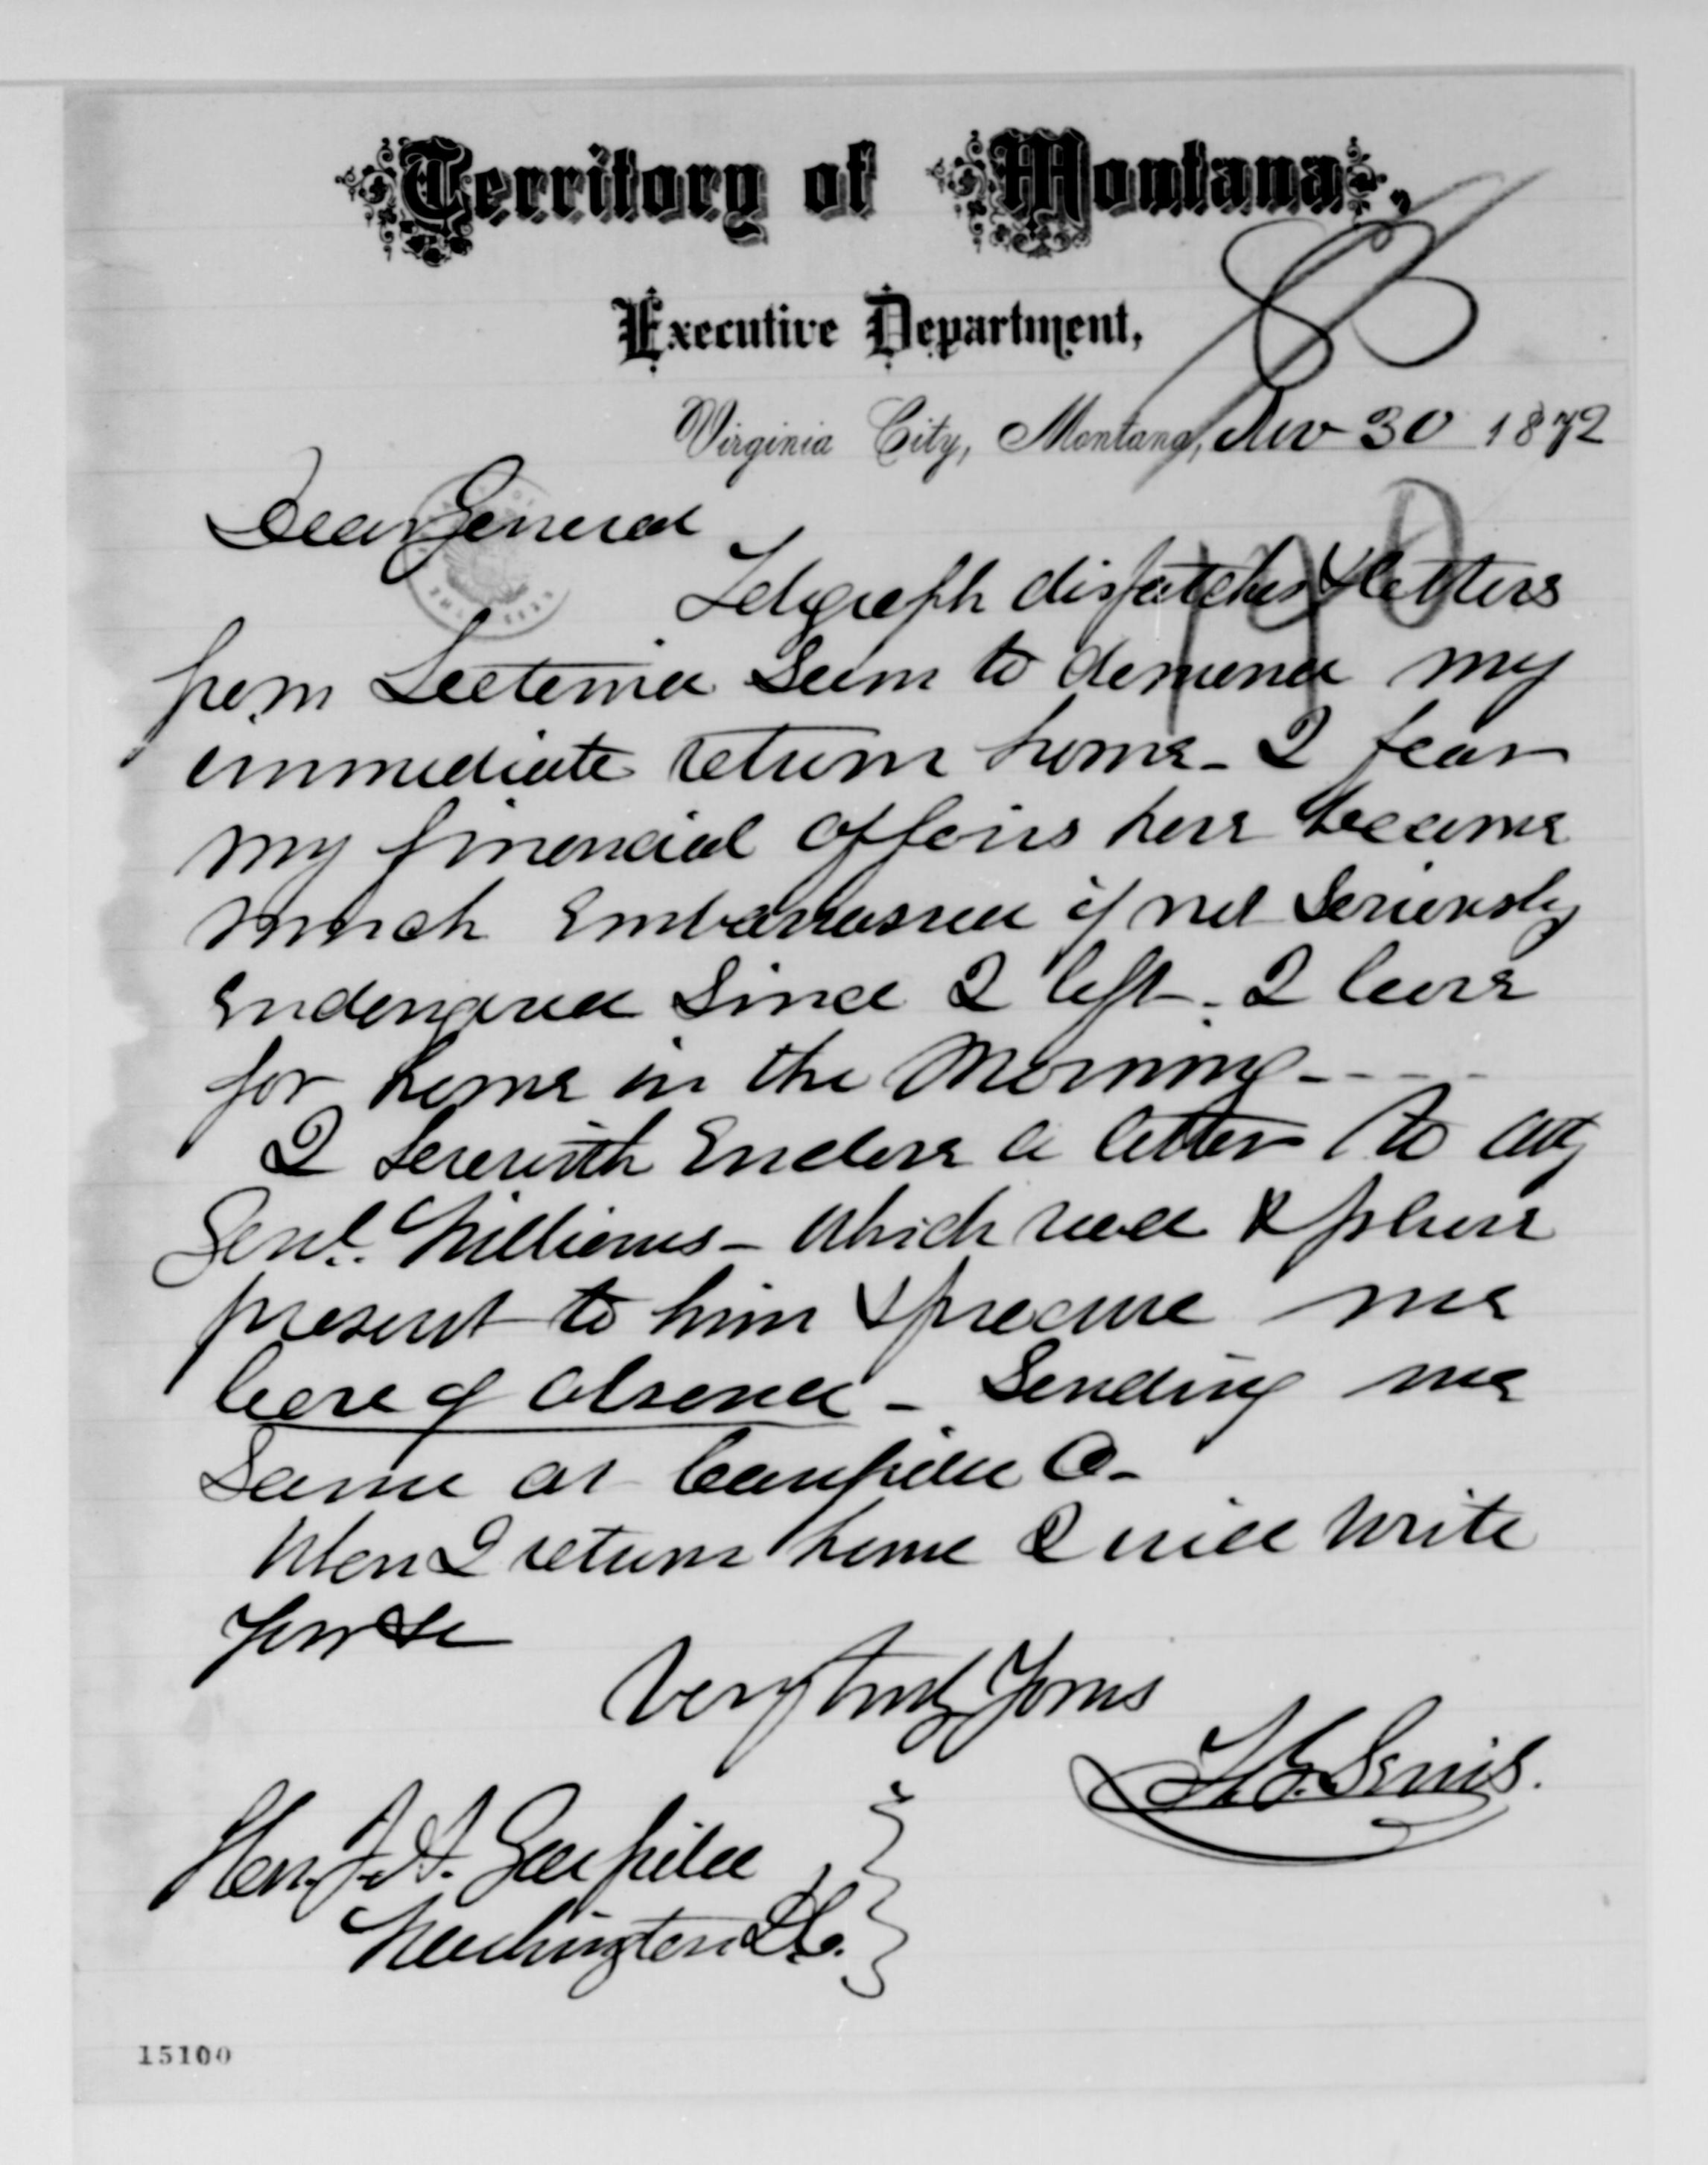 Territory of Montana,
Executive Department,
Virginia City, Montana, Nov 30 1872
Dear General
Telegraph dispatches & letters
from Seem to demand my
immediate return home - I fear
my financial affairs have become
much Embarrassed if not Seriously
Endangered Since I left. I leave
for home in the Morning - - - -
I herewith Enclose a letter to Atty
Genl. Williams - Which read & please
present to him & procure me
leave of absence - Sending me
Same at Canfield O-
When I return home I will write
You &c
Very truly Yours
Hon. J. A. Garfield
Washington D.C.
15100